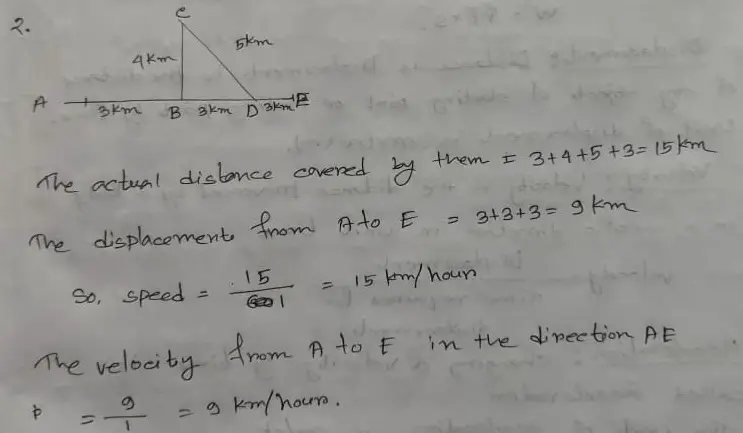 2.
C
4km
5km
A
3km
B
3km
D
3km
E
The actual distance covered by them = 3+4+5+3=15km
The displacement from A to E = 3+3+3= 9 km
So, speed = 15/1 = 15 km/hour
The velocity from A to E in the direction AE
= 9/1 = 9 km/hour.